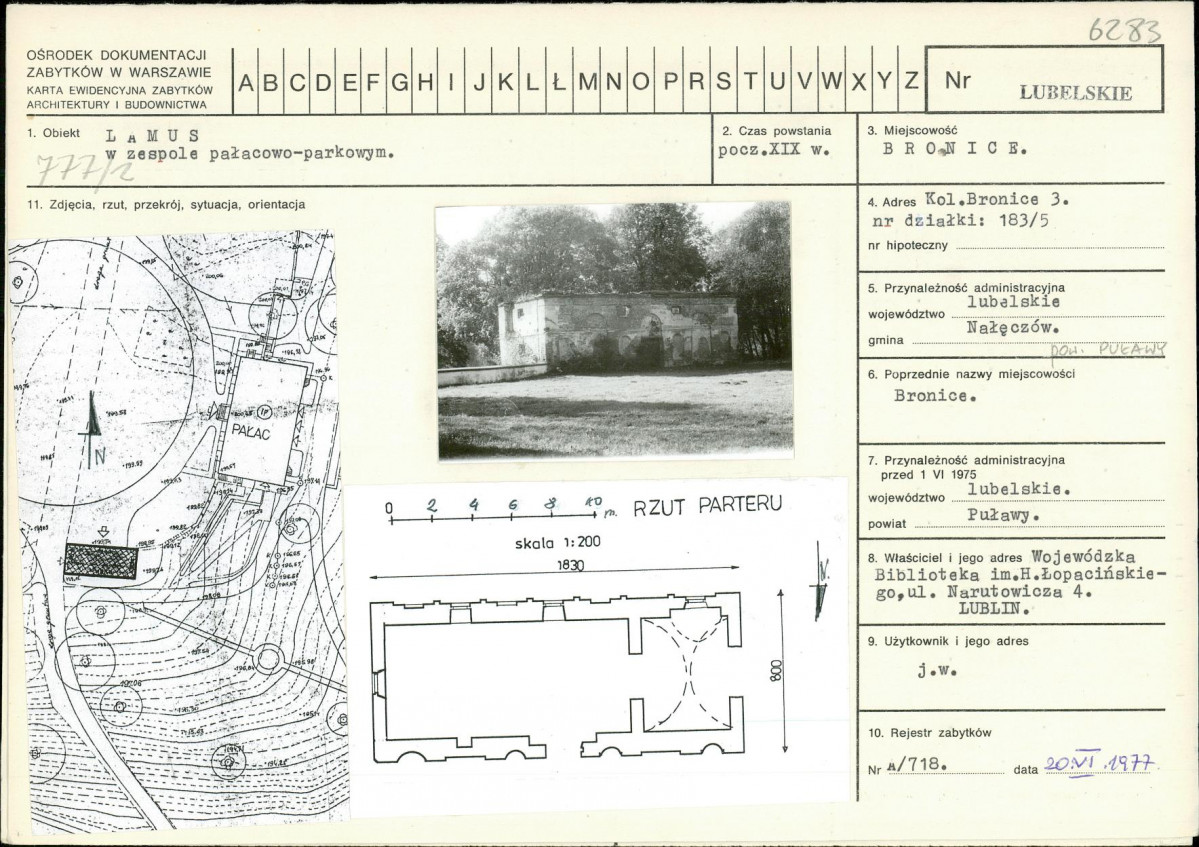 6283
OŚRODEK DOKUMENTACJI
ZABYTKÓW W WARSZAWIE
KARTA EWIDENCYJNA ZABYTKÓW
ARCHITEKTURY I BUDOWNICTWA
A B C D E F G H I J K L Ł M N O P R S T U V W X Y Z
Nr LUBELSKIE
1. Obiekt LAMUS
w zespole pałacowo-parkowym.
777/2
2. Czas powstania
pocz.XIX w.
3. Miejscowość
BRONICE.
11. Zdjęcia, rzut, przekrój, sytuacja, orientacja
4. Adres Kol.Bronice 3.
nr działki: 183/5
nr hipoteczny
5. Przynależność administracyjna
województwo lubelskie
gmina Nałęczów.
pow. PUŁAWY
6. Poprzednie nazwy miejscowości
Bronice.
7. Przynależność administracyjna
przed 1 VI 1975
województwo lubelskie.
powiat Puławy.
8. Właściciel i jego adres Wojewódzka
Biblioteka im.H.Łopacińskie-
go,ul. Narutowicza 4.
LUBLIN.
9. Użytkownik i jego adres
j.w.
10. Rejestr zabytków
Nr A/718. data 20.VI.1977.
PAŁAC
N
0 2 4 6 8 10 m.
RZUT PARTERU
skala 1:200
1830
N.
800